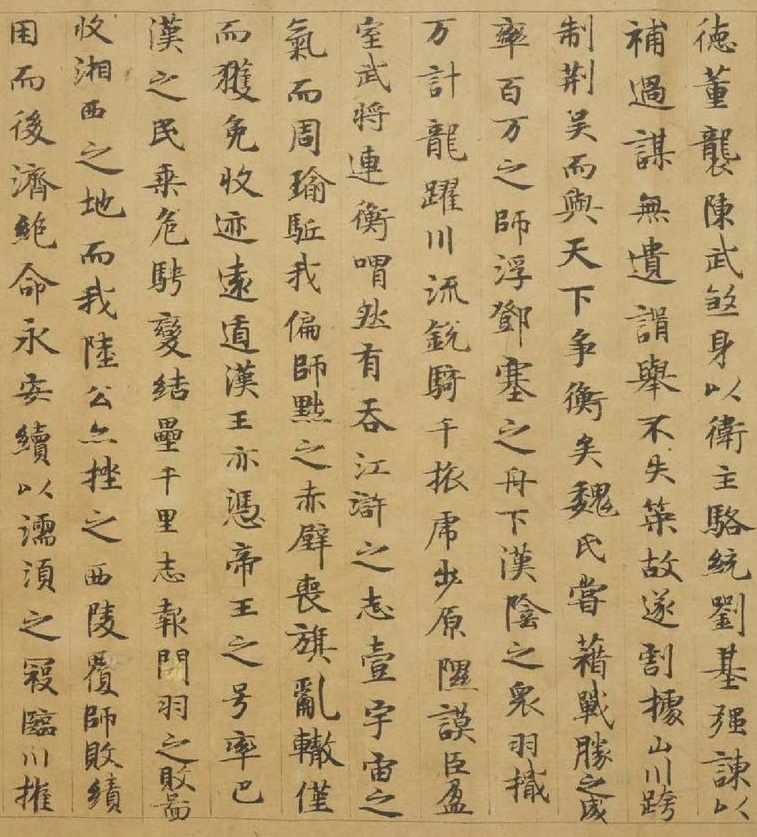 德董襲陳武煞身以衛主駱統劉基强諫以
補過謀無遺諝舉不失筞故遂割據山川跨
制荆吴而與天下争衡矣魏氏嘗藉戰勝之威
率百万之師浮鄧塞之舟下漢陰之衆羽檝
万計龍躍川流銳騎千旅虎步原隰謨臣盈
室武將連衡喟然有吞江滸之志壹宇宙之
氣而周瑜駈我偏師黜之赤壁喪旗亂轍僅
而獲免收迹遠遁漢王亦憑帝王之号率巴
漢之民乗危騁變結壘千里志報關羽之敗啚
收湘西之地而我陸公亦挫之西陵覆師敗績
困而後濟絶命永安續以濡湏之寇臨川摧